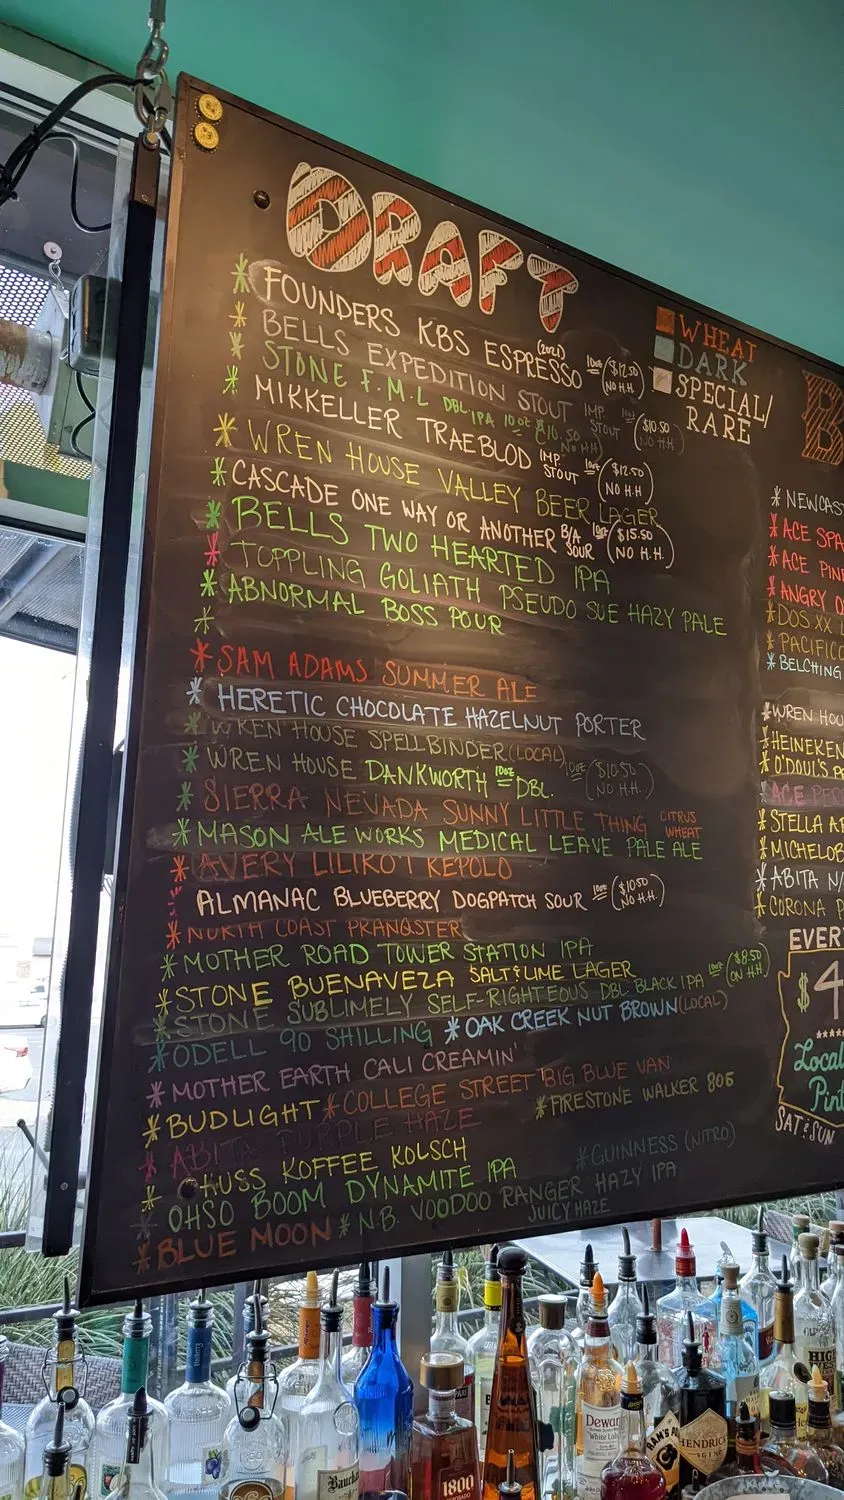 DRAFT
* FOUNDERS KBS ESPRESSO (2021) 10oz ($12.50 NO H.H)
* BELLS EXPEDITION STOUT IMP. STOUT 10oz ($10.50 NO H.H)
* STONE F.M.L DBL IPA 10oz $10.50 (NO H.H)
* MIKKELLER TRAEBLOD IMP. STOUT 10oz ($12.50 NO H.H)
* WREN HOUSE VALLEY BEER LAGER
* CASCADE ONE WAY OR ANOTHER B/A SOUR 10oz ($15.50 NO H.H.)
* BELLS TWO HEARTED IPA
* TOPPLING GOLIATH PSEUDO SUE HAZY PALE
* ABNORMAL BOSS POUR
*
* SAM ADAMS SUMMER ALE
* HERETIC CHOCOLATE HAZELNUT PORTER
* WREN HOUSE SPELLBINDER (LOCAL)
* WREN HOUSE DANKWORTH 10oz DBL. 10oz ($10.50 NO H.H.)
* SIERRA NEVADA SUNNY LITTLE THING CITRUS WHEAT
* MASON ALE WORKS MEDICAL LEAVE PALE ALE
* AVERY LILIKO'I KEPOLO
* ALMANAC BLUEBERRY DOGPATCH SOUR 10oz ($10.50 NO H.H.)
* NORTH COAST PRANQSTER
* MOTHER ROAD TOWER STATION IPA
* STONE BUENAVEZA SALT & LIME LAGER
* STONE SUBLIMELY SELF-RIGHTEOUS DBL. BLACK IPA 10oz ($8.50 ON H.H)
* ODELL 90 SHILLING * OAK CREEK NUT BROWN (LOCAL)
* MOTHER EARTH CALI CREAMIN'
* BUDLIGHT * COLLEGE STREET BIG BLUE VAN
* ABITA PURPLE HAZE * FIRESTONE WALKER 805
* HUSS KOFFEE KOLSCH * GUINNESS (NITRO)
* OHSO BOOM DYNAMITE IPA
* BLUE MOON * N.B. VOODOO RANGER HAZY IPA
JUICY HAZE
WHEAT
DARK
SPECIAL/
RARE
B
* NEWCAS
* ACE SPA
* ACE PIN
* ANGRY O
* DOS XX L
* PACIFICO
* BELCHING
* WREN HOU
* HEINEKEN
* O'DOUL'S
* ACE PER
* STELLA AR
* MICHELOB
* ABITA
* CORONA
EVER
$4
Local
Pint
SAT & SUN
Dewar
HENDRICK
GIN
1800
HIG